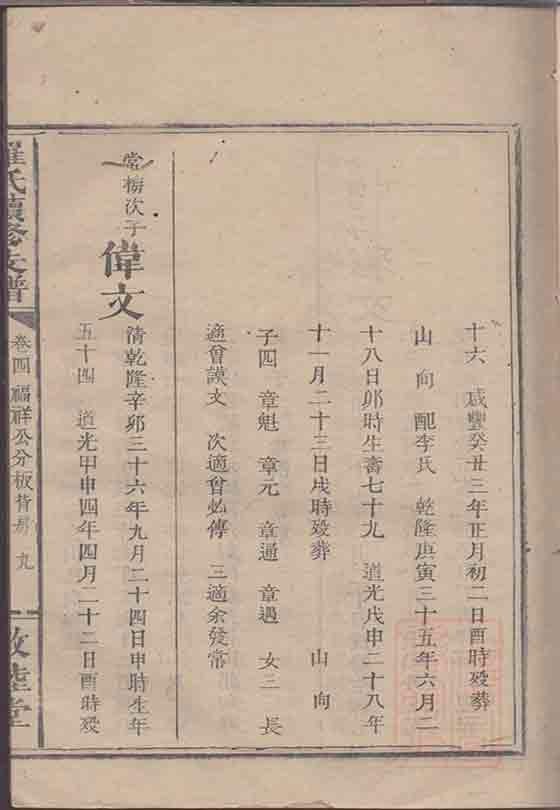 十六 咸豐癸丑三年正月初二日酉時歿葬
山 向 配李氏 乾隆庚寅三十五年六月二
十八日卯時生壽七十九 道光戊申二十八年
十一月二十三日戌時歿葬 山 向
子四 章魁 章元 章通 章遇 女三 長
適曾謨文 次適曾必傳 三適余發常
常梅次子
偉文
清乾隆辛卯三十六年九月二十四日申時生年
五十四 道光甲申四年四月二十二日酉時歿
羅氏續修支譜
卷四 福祥公分板背房 九
敦睦堂